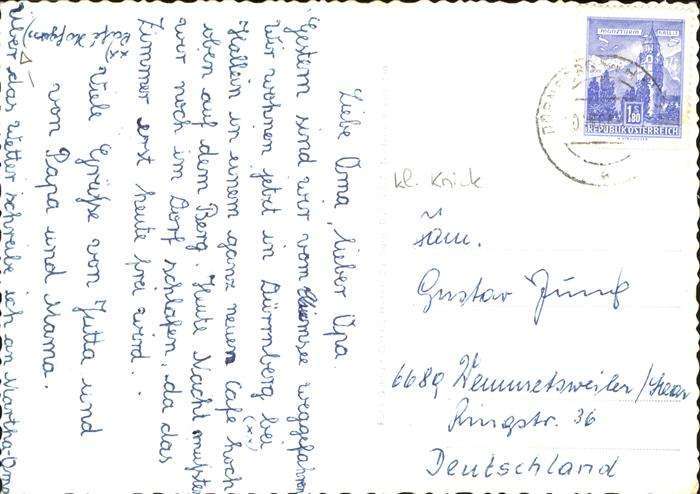 Liebe Oma, lieber Opa.
Gestern sind wir vom Chiemsee weggefahren
wir wohnen jetzt in Dürrnberg bei (xx)
Hallein in einem ganz neuen Cafe hoch
oben auf dem Berg. Heute Nacht mußten
wir noch im Dorf schlafen, da das
Zimmer erst heute frei wird.
Viele Grüße von Jutta und
von Papa und Mama.
Über das Wetter schreibe ich an Martha-Oma
xx Café
PROMZTURM HALL I.T.
S 1.80
REPUBLIK ÖSTERREICH
kl. Krick
Fam.
Gustav Jung
6689 Wemmetsweiler/Saar
Ringstr. 36
Deutschland